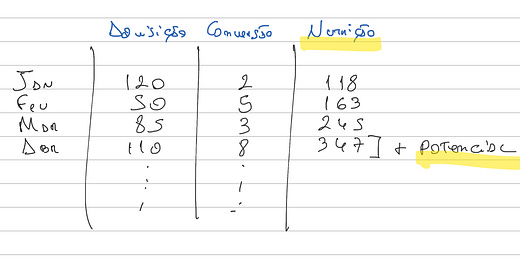 Aquisição Conversão Nutrição
Jan 120 2 118
Fev 50 5 163
Mar 85 3 245
Abr 110 8 347 ] + Potencial